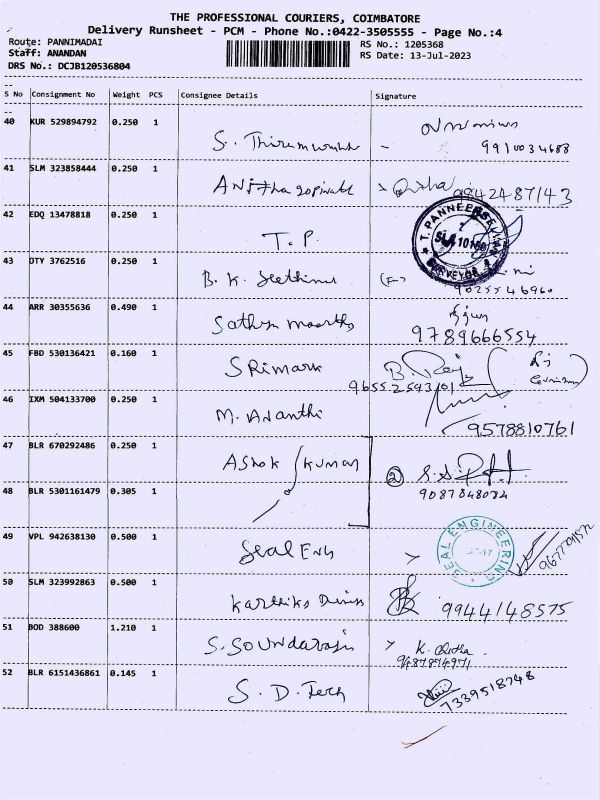 THE PROFESSIONAL COURIERS, COIMBATORE
Delivery Runsheet - PCM - Phone No.:0422-3505555 - Page No.:4
Route: PANNIMADAI
RS No.: 1205368
Staff: ANANDAN
RS Date: 13-Jul-2023
DRS No.: DCJB120536804
S No Consignment No Weight PCS Consignee Details Signature
40 KUR 529894792 0.250 1
S.
99100 34688
41 SLM 323858444 0.250 1
Anitha gopinath
9942487143
42 EDQ 13478818 0.250 1
T. PANNEERSELVAM
T.P.
SURVEYOR
43 OTY 3762516 0.250 1
B. K.
9025546960
44 ARR 30355636 0.490 1
Sathya moorthy
9789666554
45 FBD 530136421 0.160 1
SRimark
B. Raj
46 IXM 504133700 0.250 1
M. Ananthi
9578810761
47 BLR 670292486 0.250 1
Ashok Kumar
2
48 BLR 5301161479 0.305 1
49 VPL 942638130 0.500 1
Seal Eng
SEAL ENGINEERING
50 SLM 323992863 0.500 1
Karthika
9944148575
51 BOD 388600 1.210 1
S. Soundaraju
K.
52 BLR 6151436861 0.145 1
S. D. Tech
7339518748